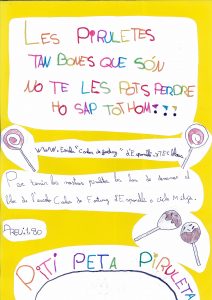 LES PIRULETES
TAN BONES QUE SÓN
NO TE LES POTS PERDRE
HO SAP TOTHOM!!!
WWW. Escola "Carles de Fortuny" d'Esponellà
Per tenir les nostres piruletes les has de demanar al
bloc de l'escola Carles de Fortuny d'Esponellà o cicle Mitjà.
PREU: 1,80
PITI PETA PIRULETA